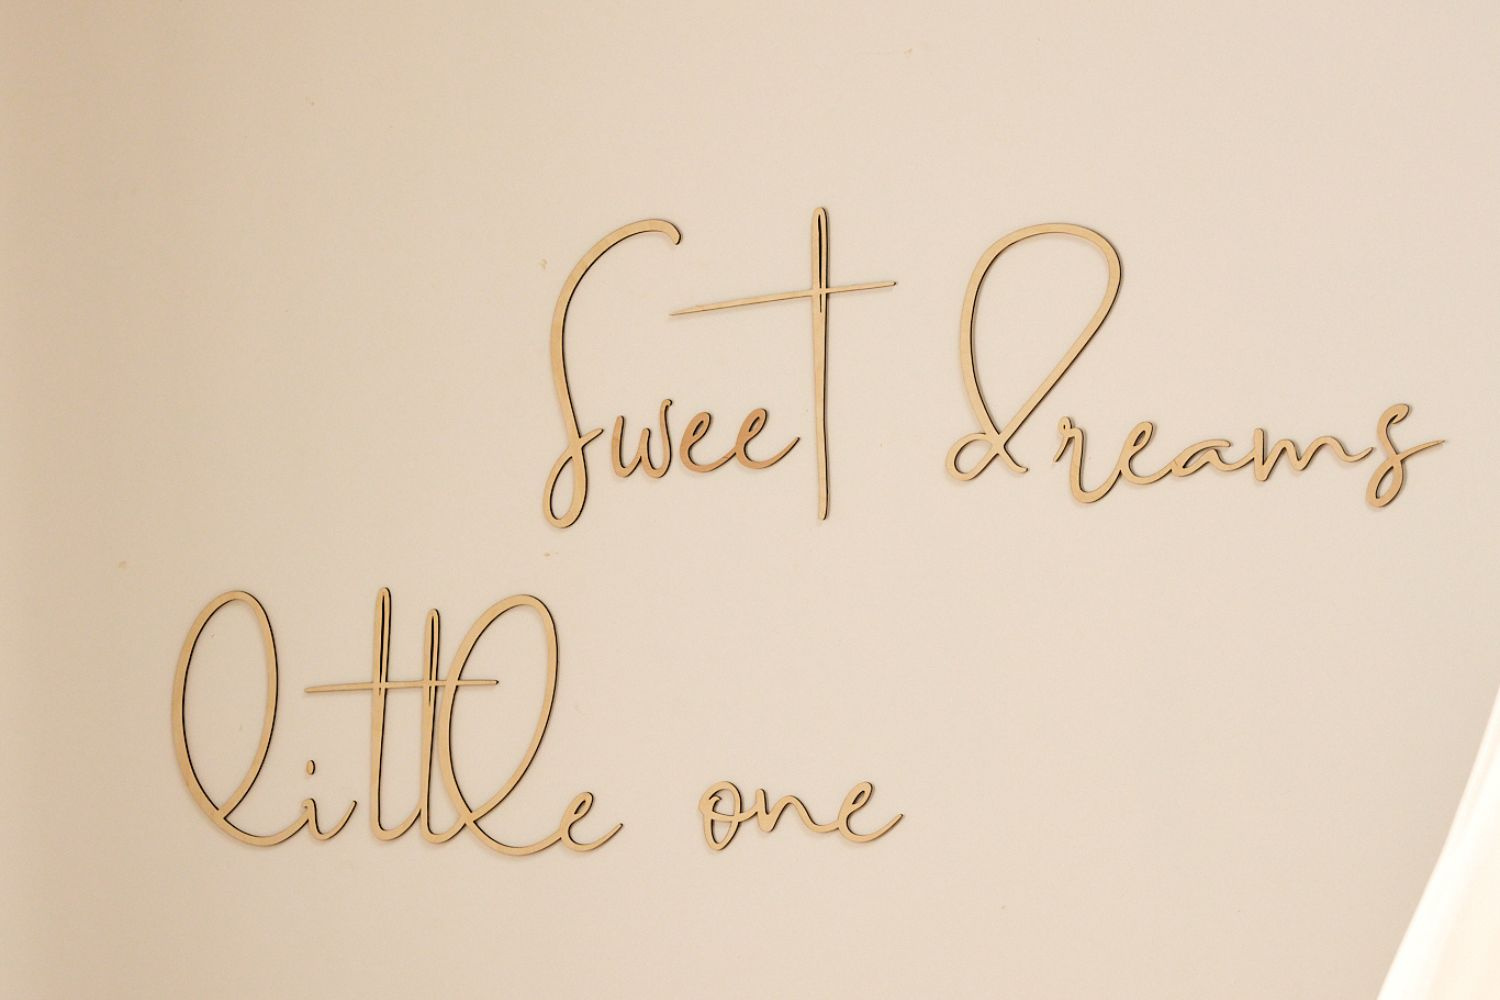 Sweet dreams
little one